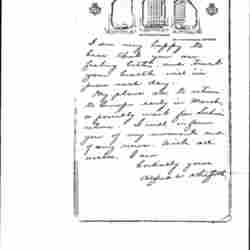 I am very happy to
hear that you are
feeling better, and trust
your health will im
prove each day.
My plans are to return
to Europe early in March,
& possibly wait for
return. I will inform
you of my movements and
of any news. With all
wishes, I am
Cordially yours